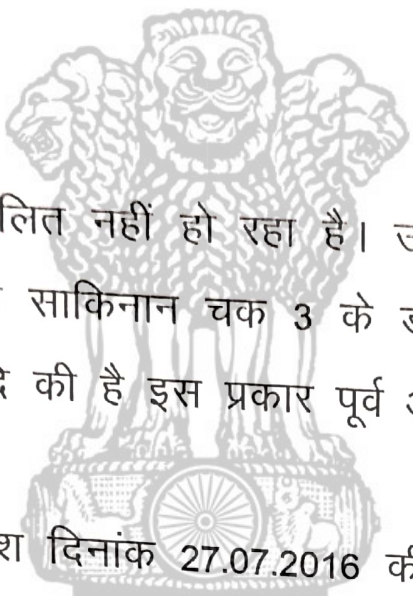 लित नहीं हो रहा है।
साकिनान चक 3 के
की है इस प्रकार पूर्व
दिनांक 27.07.2016 की